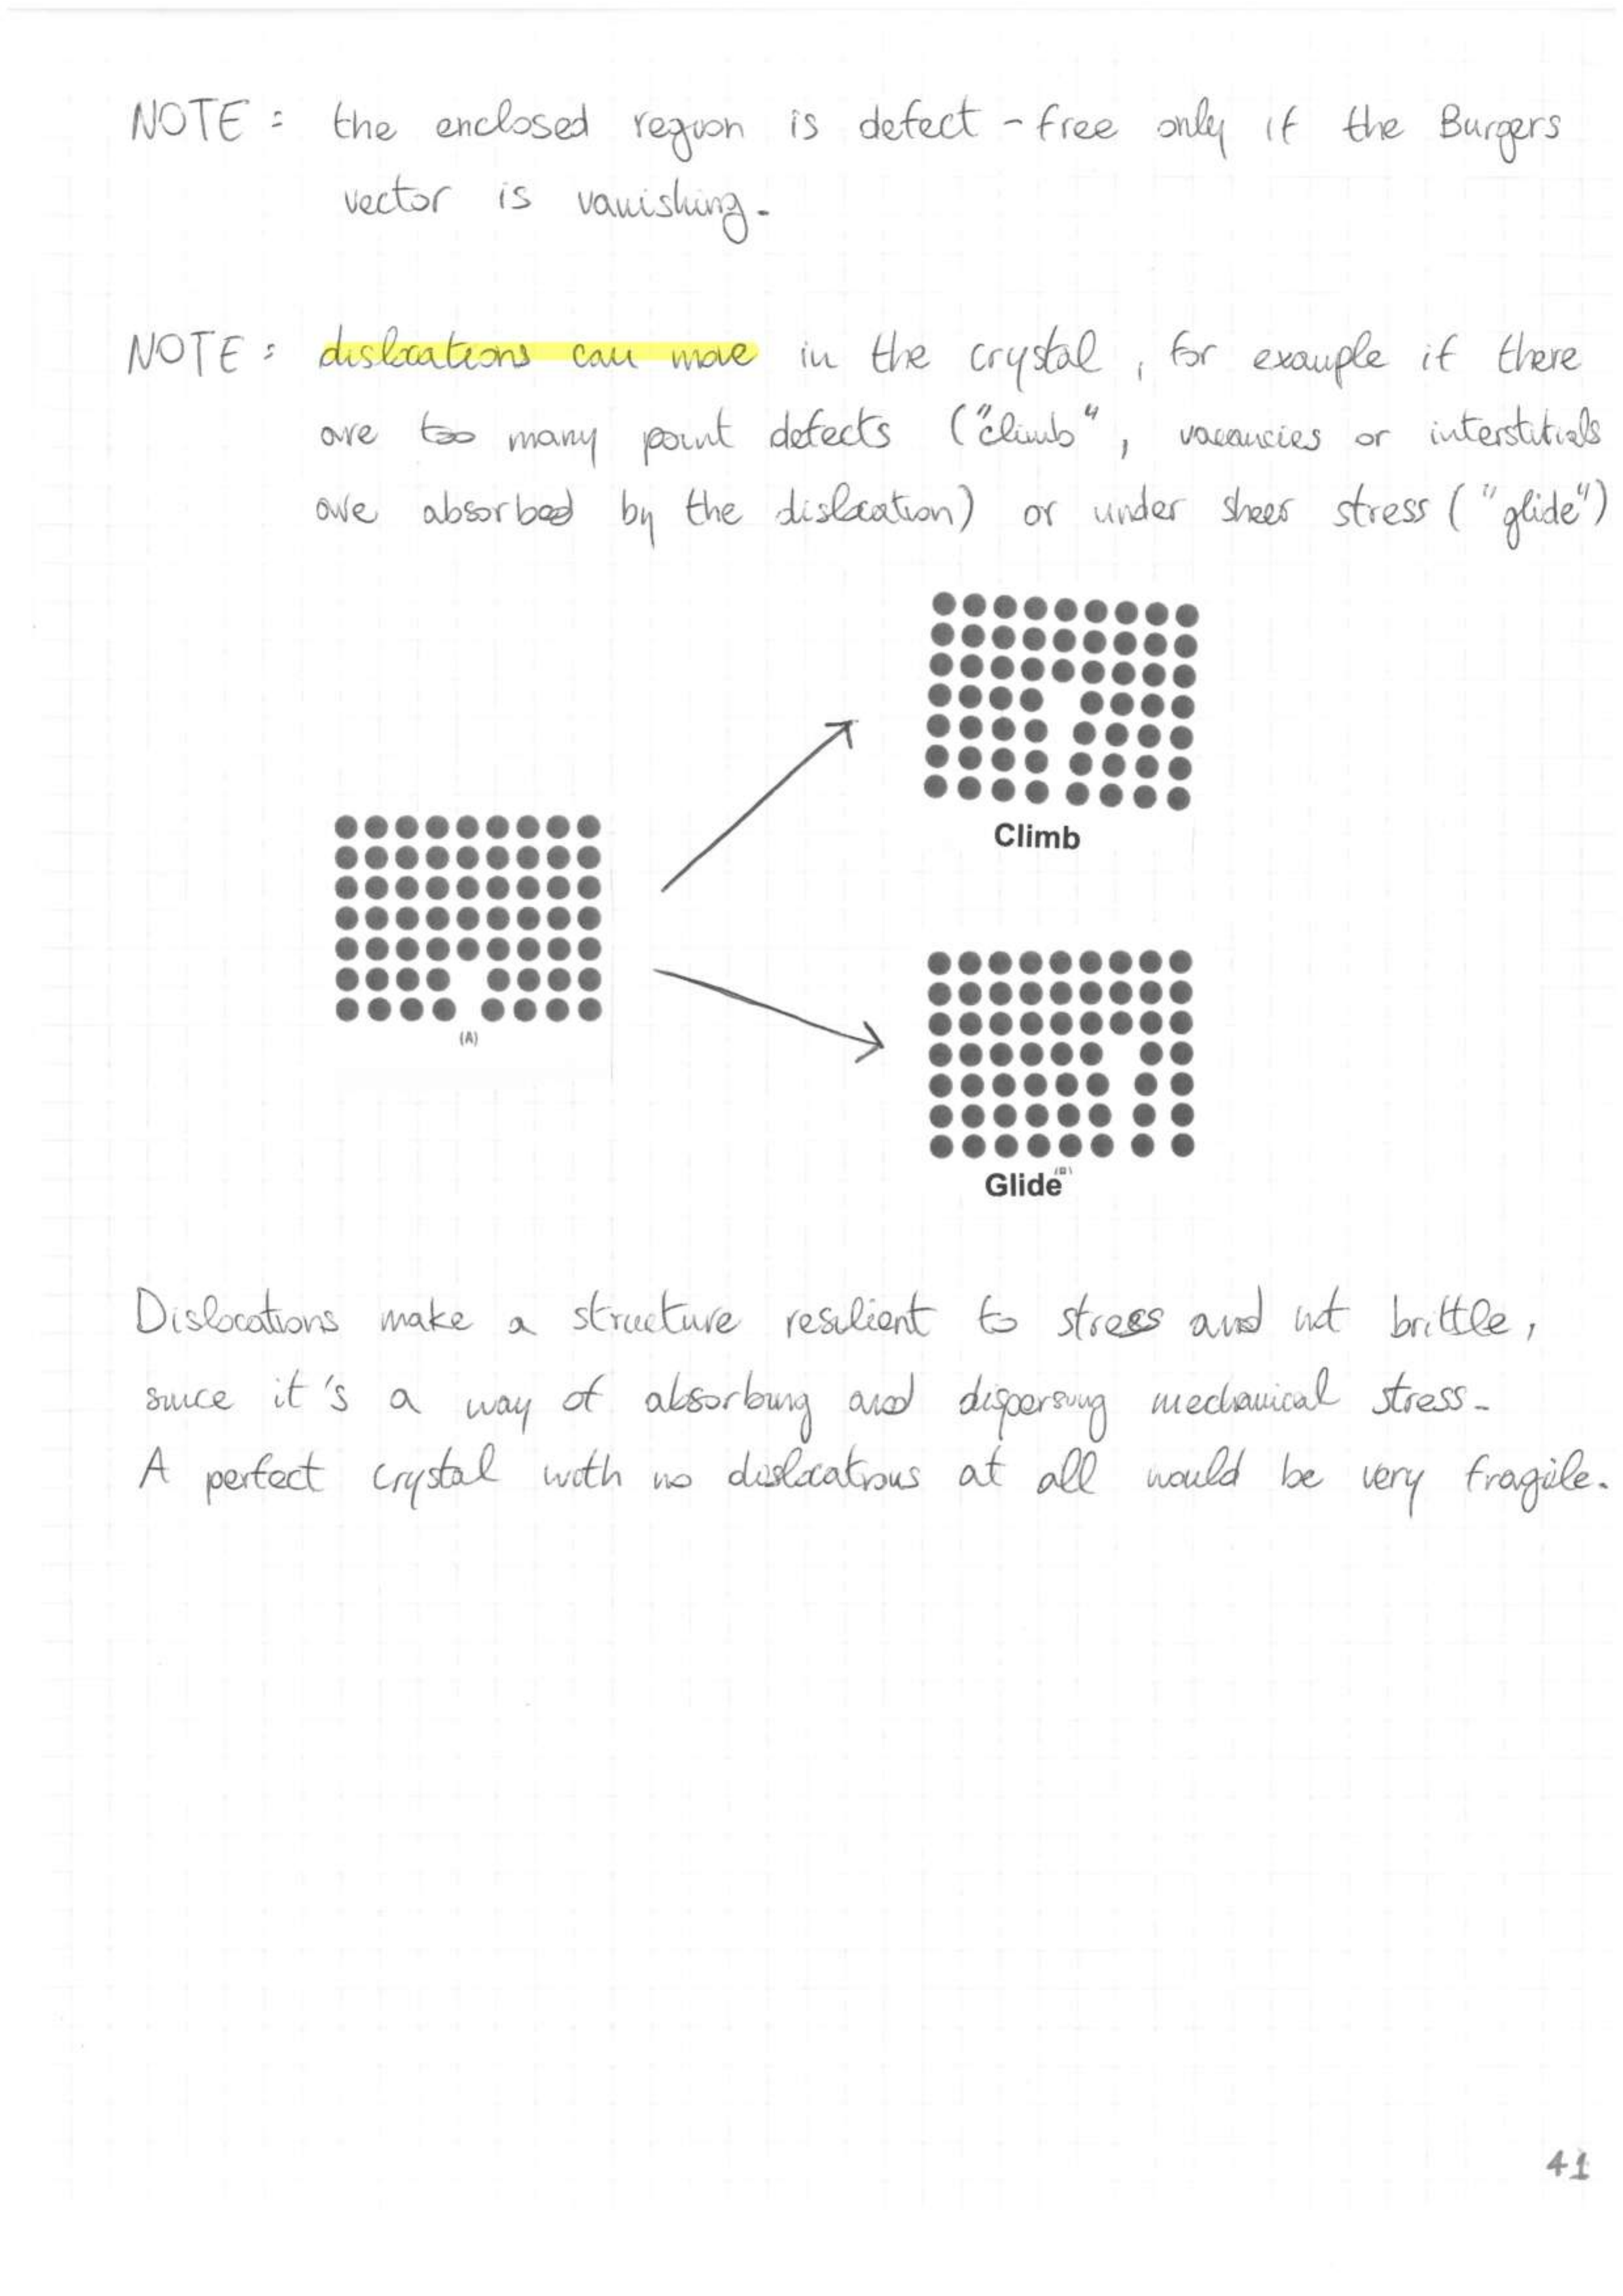 NOTE : the enclosed region is defect - free only if the Burgers
vector is vanishing.
NOTE : dislocations can move in the crystal, for example if there
are too many point defects ("climb", vacancies or interstitials
are absorbed by the dislocation) or under sheer stress ("glide")
Climb
(A)
Glide
(B)
Dislocations make a structure resilient to stress and not brittle,
since it's a way of absorbing and dispersing mechanical stress.
A perfect crystal with no dislocations at all would be very fragile.
41